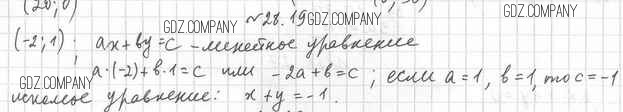 (20; 0)
№28.19
(-2; 1); ax+by=c - линейное уравнение
a·(-2)+b·1=c или -2a+b=c; если a=1, b=1, то c=-1
искомое уравнение: x+y=-1.
GDZ.COMPANY
GDZ.COMPANY
GDZ.COMPANY
GDZ.COMPANY
GDZ.COMPANY